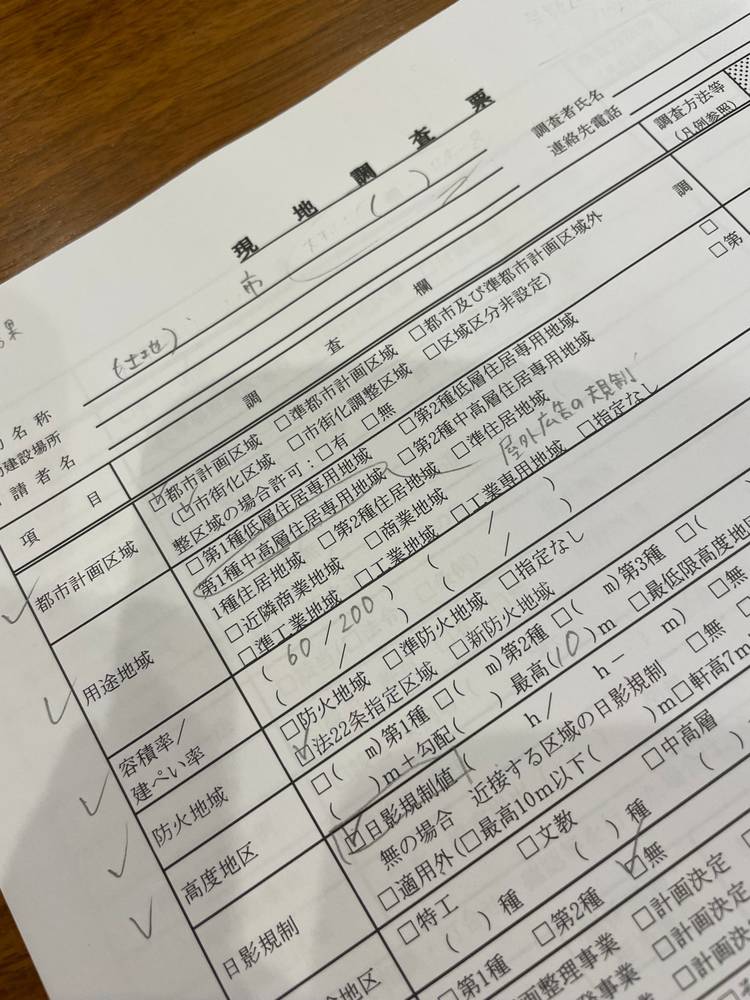 現地調査票
調査者氏名
連絡先電話
市
(土地)
名称
建設場所
請者名
調査方法等
(凡例参照)
項目
調査欄
調
都市計画区域
☑都市計画区域 □準都市計画区域 □都市及び準都市計画区域外
(☑市街化区域 □市街化調整区域 □区域区分非設定)
整区域の場合許可:□有 □無
□
□第
用途地域
□第1種低層住居専用地域 □第2種低層住居専用地域
第1種中高層住居専用地域 □第2種中高層住居専用地域
1種住居地域 □第2種住居地域 □準住居地域
屋外広告の規制
□近隣商業地域 □商業地域 □工業専用地域 □指定なし
□準工業地域 □工業地域
容積率/
建ぺい率
( 60 / 200 ) ( / )
( / ) ( / )
防火地域
□防火地域 □準防火地域 □指定なし
☑法22条指定区域 □新防火地域
高度地区
□( m)第1種 □( m)第2種 □( m)第3種 □(
( )m+勾配( ) 最高(10)m □最低限高度地
日影規制
☑日影規制値( h/ h- m) □無
無の場合 近接する区域の日影規制 □無
□適用外(□最高10m以下( )m□軒高7m
□特工 □文教 □中高層
( )種 ( )種 ( )
地区
□第1種 □第2種 ☑無
画整理事業 □計画決定
事業 □計画決定
□計画決定